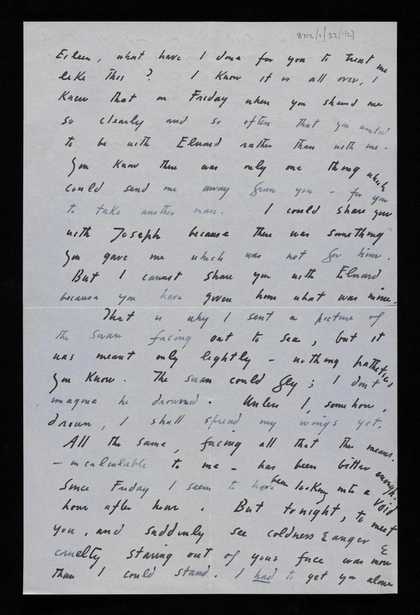 Eileen, what have I done for you to treat me
like this? I know it is all over, I
knew that on Friday when you showed me
so clearly and so often that you wanted
to be with Eluard rather than with me.
You know there was only one thing which
could send me away from you - for you
to take another man. I could share you
with Joseph because there was something
you gave me which was not for him.
But I cannot share you with Eluard
because you have given him what was mine.
That is why I sent a picture of
the swan facing out to sea, but it
was meant only lightly - nothing pathetic,
you know. The swan could fly; I don't
imagine he drowned. Unless I, somehow,
drown, I shall spread my wings yet.
All the same, facing all that this means
- incalculable to me - has been bitter enough.
Since Friday I seem to have been looking into a void
hour after hour. But tonight, to meet
you, and suddenly see coldness & anger &
cruelty staring out of your face was more
than I could stand. I had to get you alone